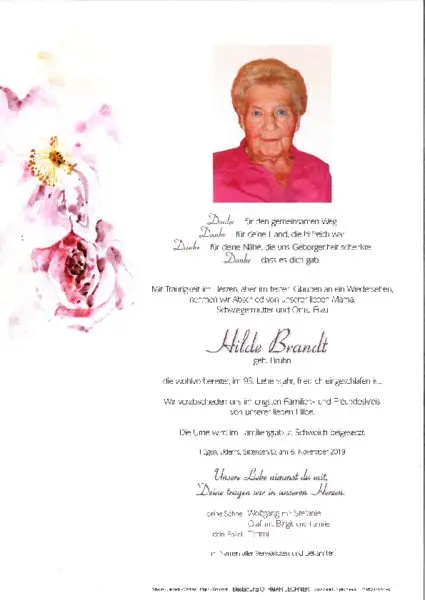 Danke für den gemeinsamen Weg
Danke für deine Hand, die hilfreich war
Danke für deine Nähe, die uns Geborgenheit schenkte
Danke dass es dich gab.
Mit Traurigkeit im Herzen, aber im festen Glauben an ein Wiedersehen,
nehmen wir Abschied von unserer lieben Mama,
Schwiegermutter und Oma, Frau
Hilde Brandt
geb. Bruhn
die wohlvorbereitet, im 93. Lebensjahr, friedlich eingeschlafen ist.
Wir verabschieden uns im engsten Familien- und Freundeskreis
von unserer lieben Hilde.
Die Urne wird im Familiengrab in Schwoich beigesetzt.
am 6. November 2019
Unsere Liebe nimmst du mit,
Deine tragen wir in unseren Herzen.
deine Söhne Wolfgang mit Stefanie
Olaf mit Birgit und Familie
dein Enkel Timmi
im Namen aller Verwandten und Bekannten